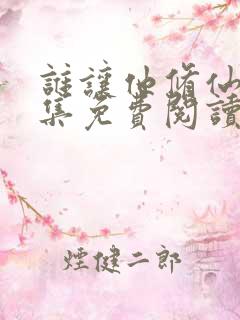 誰讓他修仙
集免費閱讀
煙健二郎